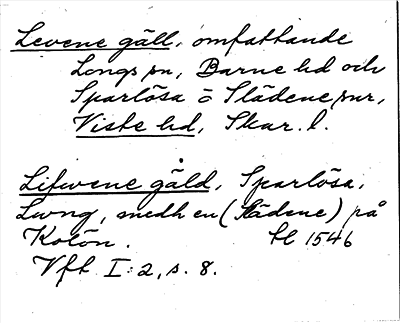 Levene gäll, omfattande
Longs sn, Barne hd och
Sparlösa o Slädene snr,
Viste hd, Skar. l.
Lifwene gäld, Sparlösa,
Lwng, medh en (Slädene) på
Kolön. hl 1546
Vft I:2, s. 8.